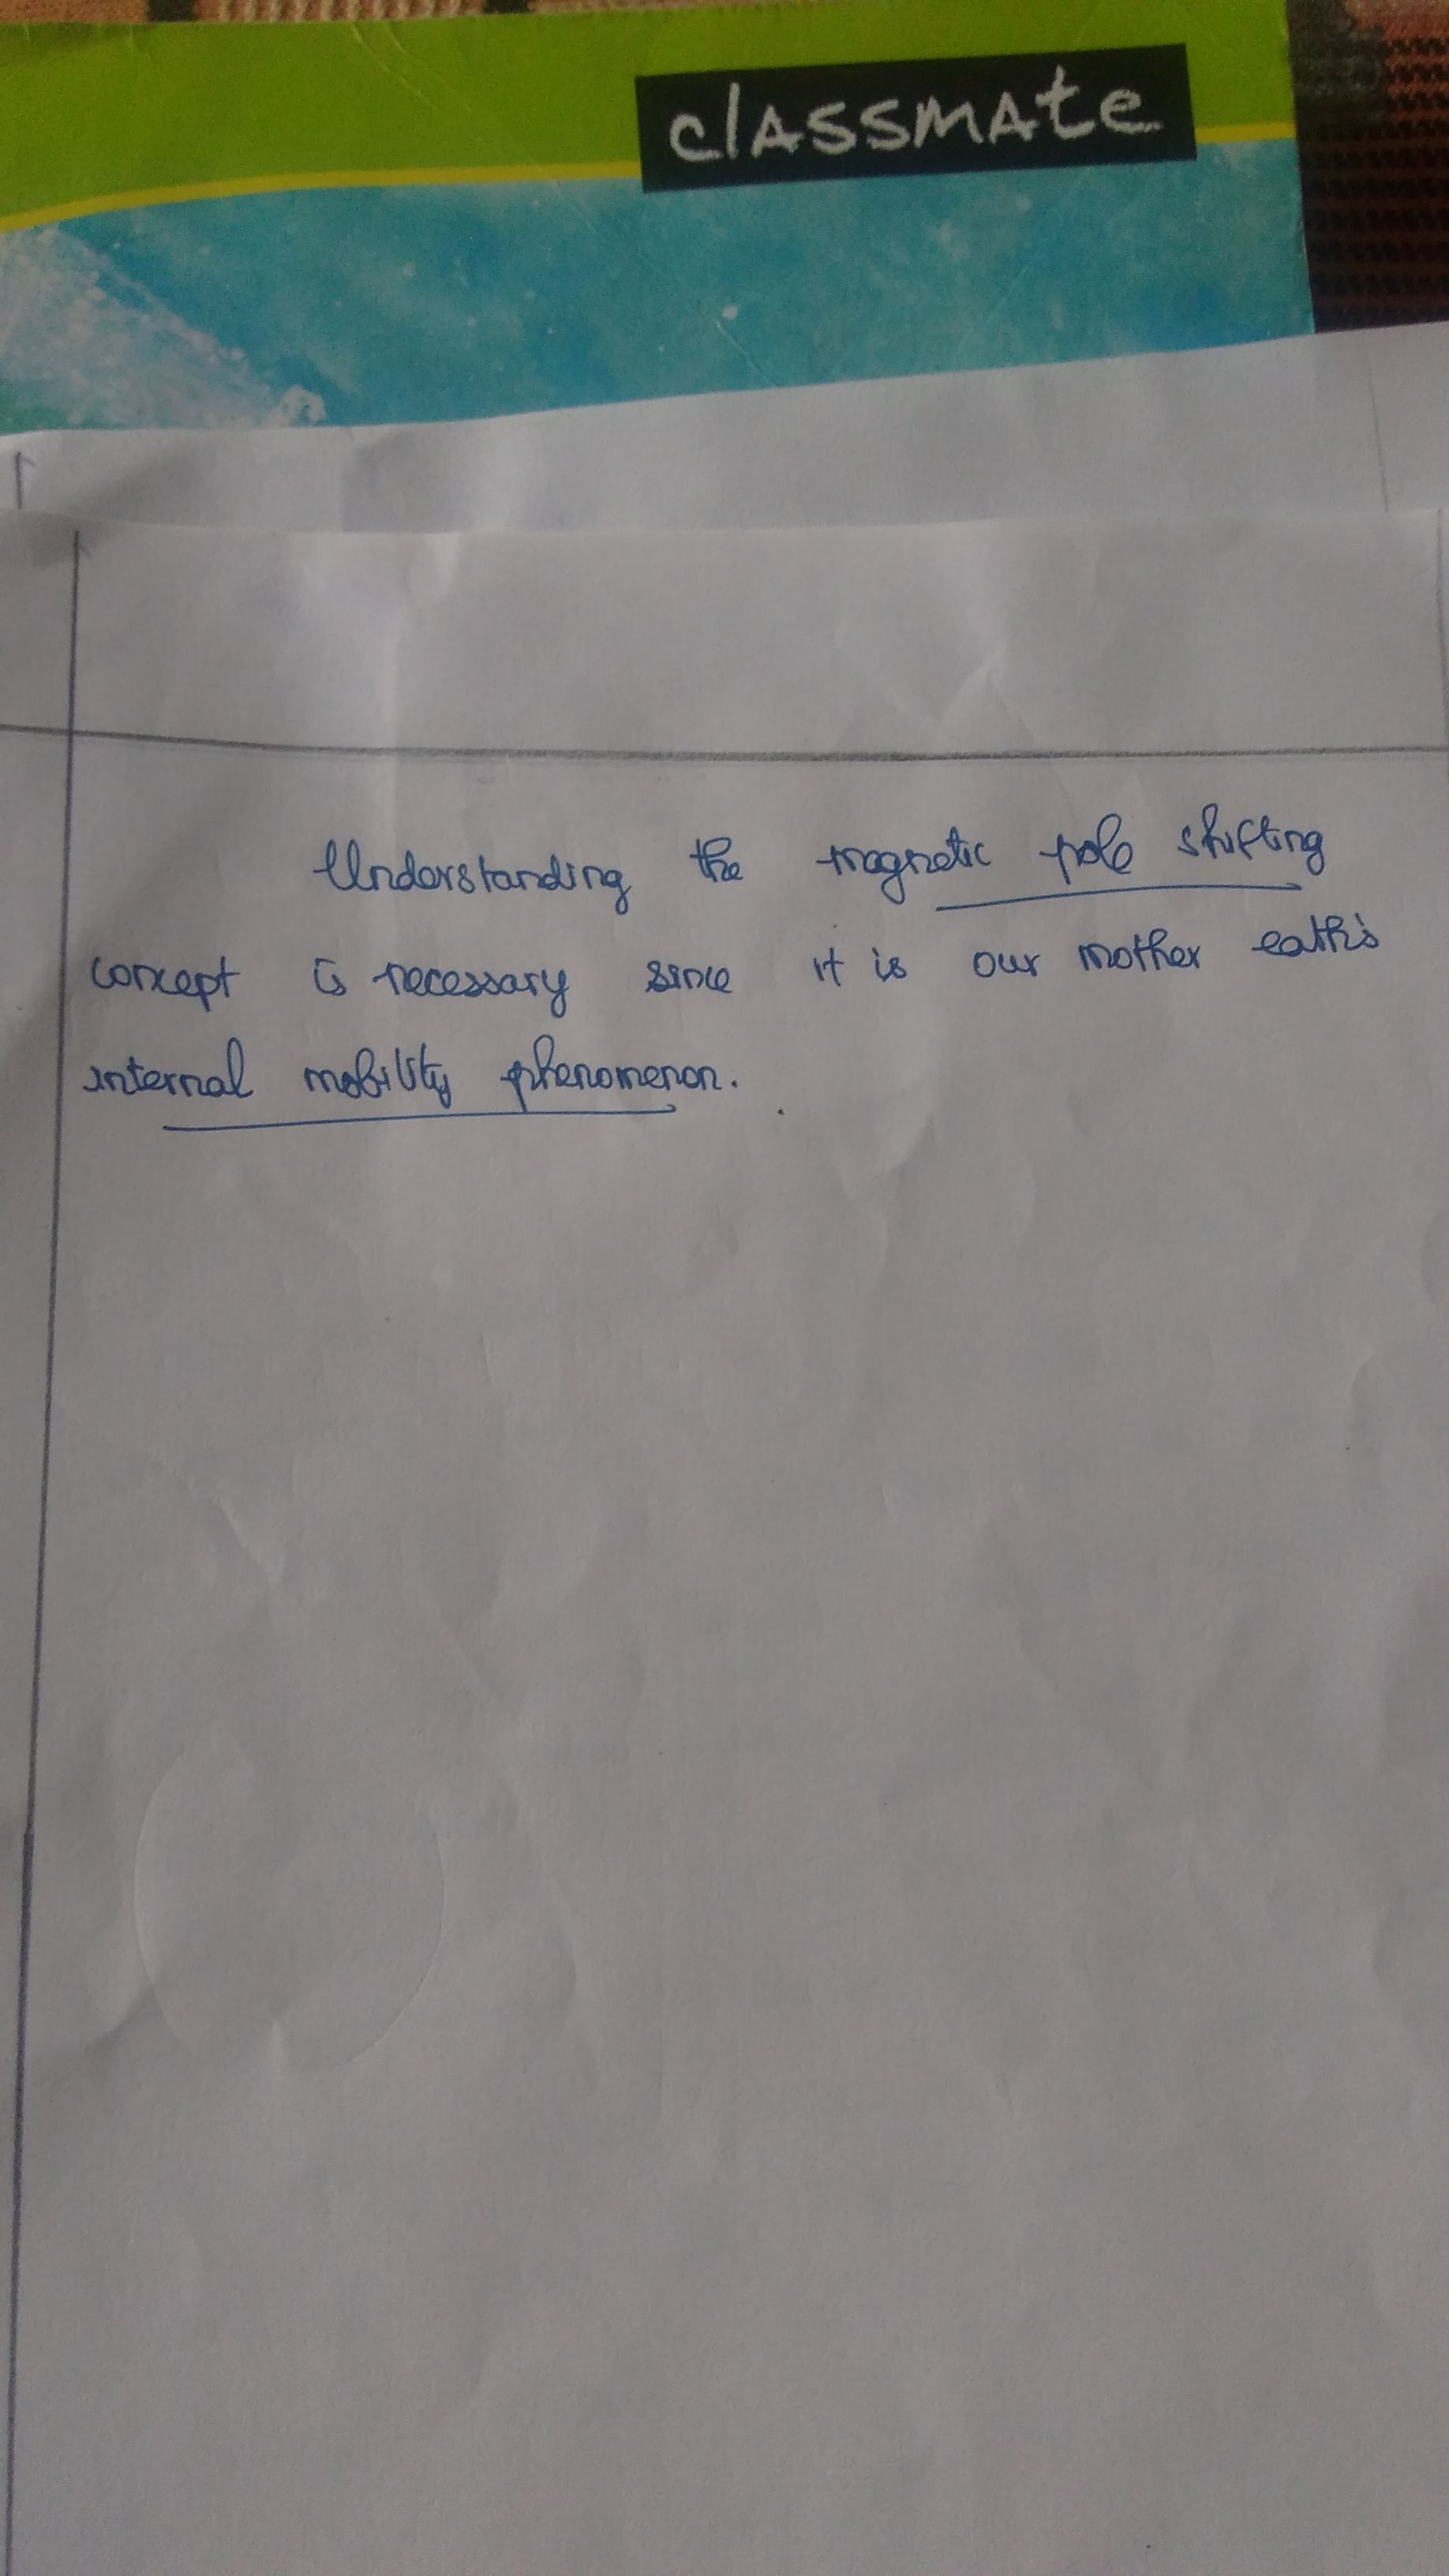 classmate
Understanding the magnetic pole shifting
concept is necessary since it is our mother eath's
internal mobility phenomenon.